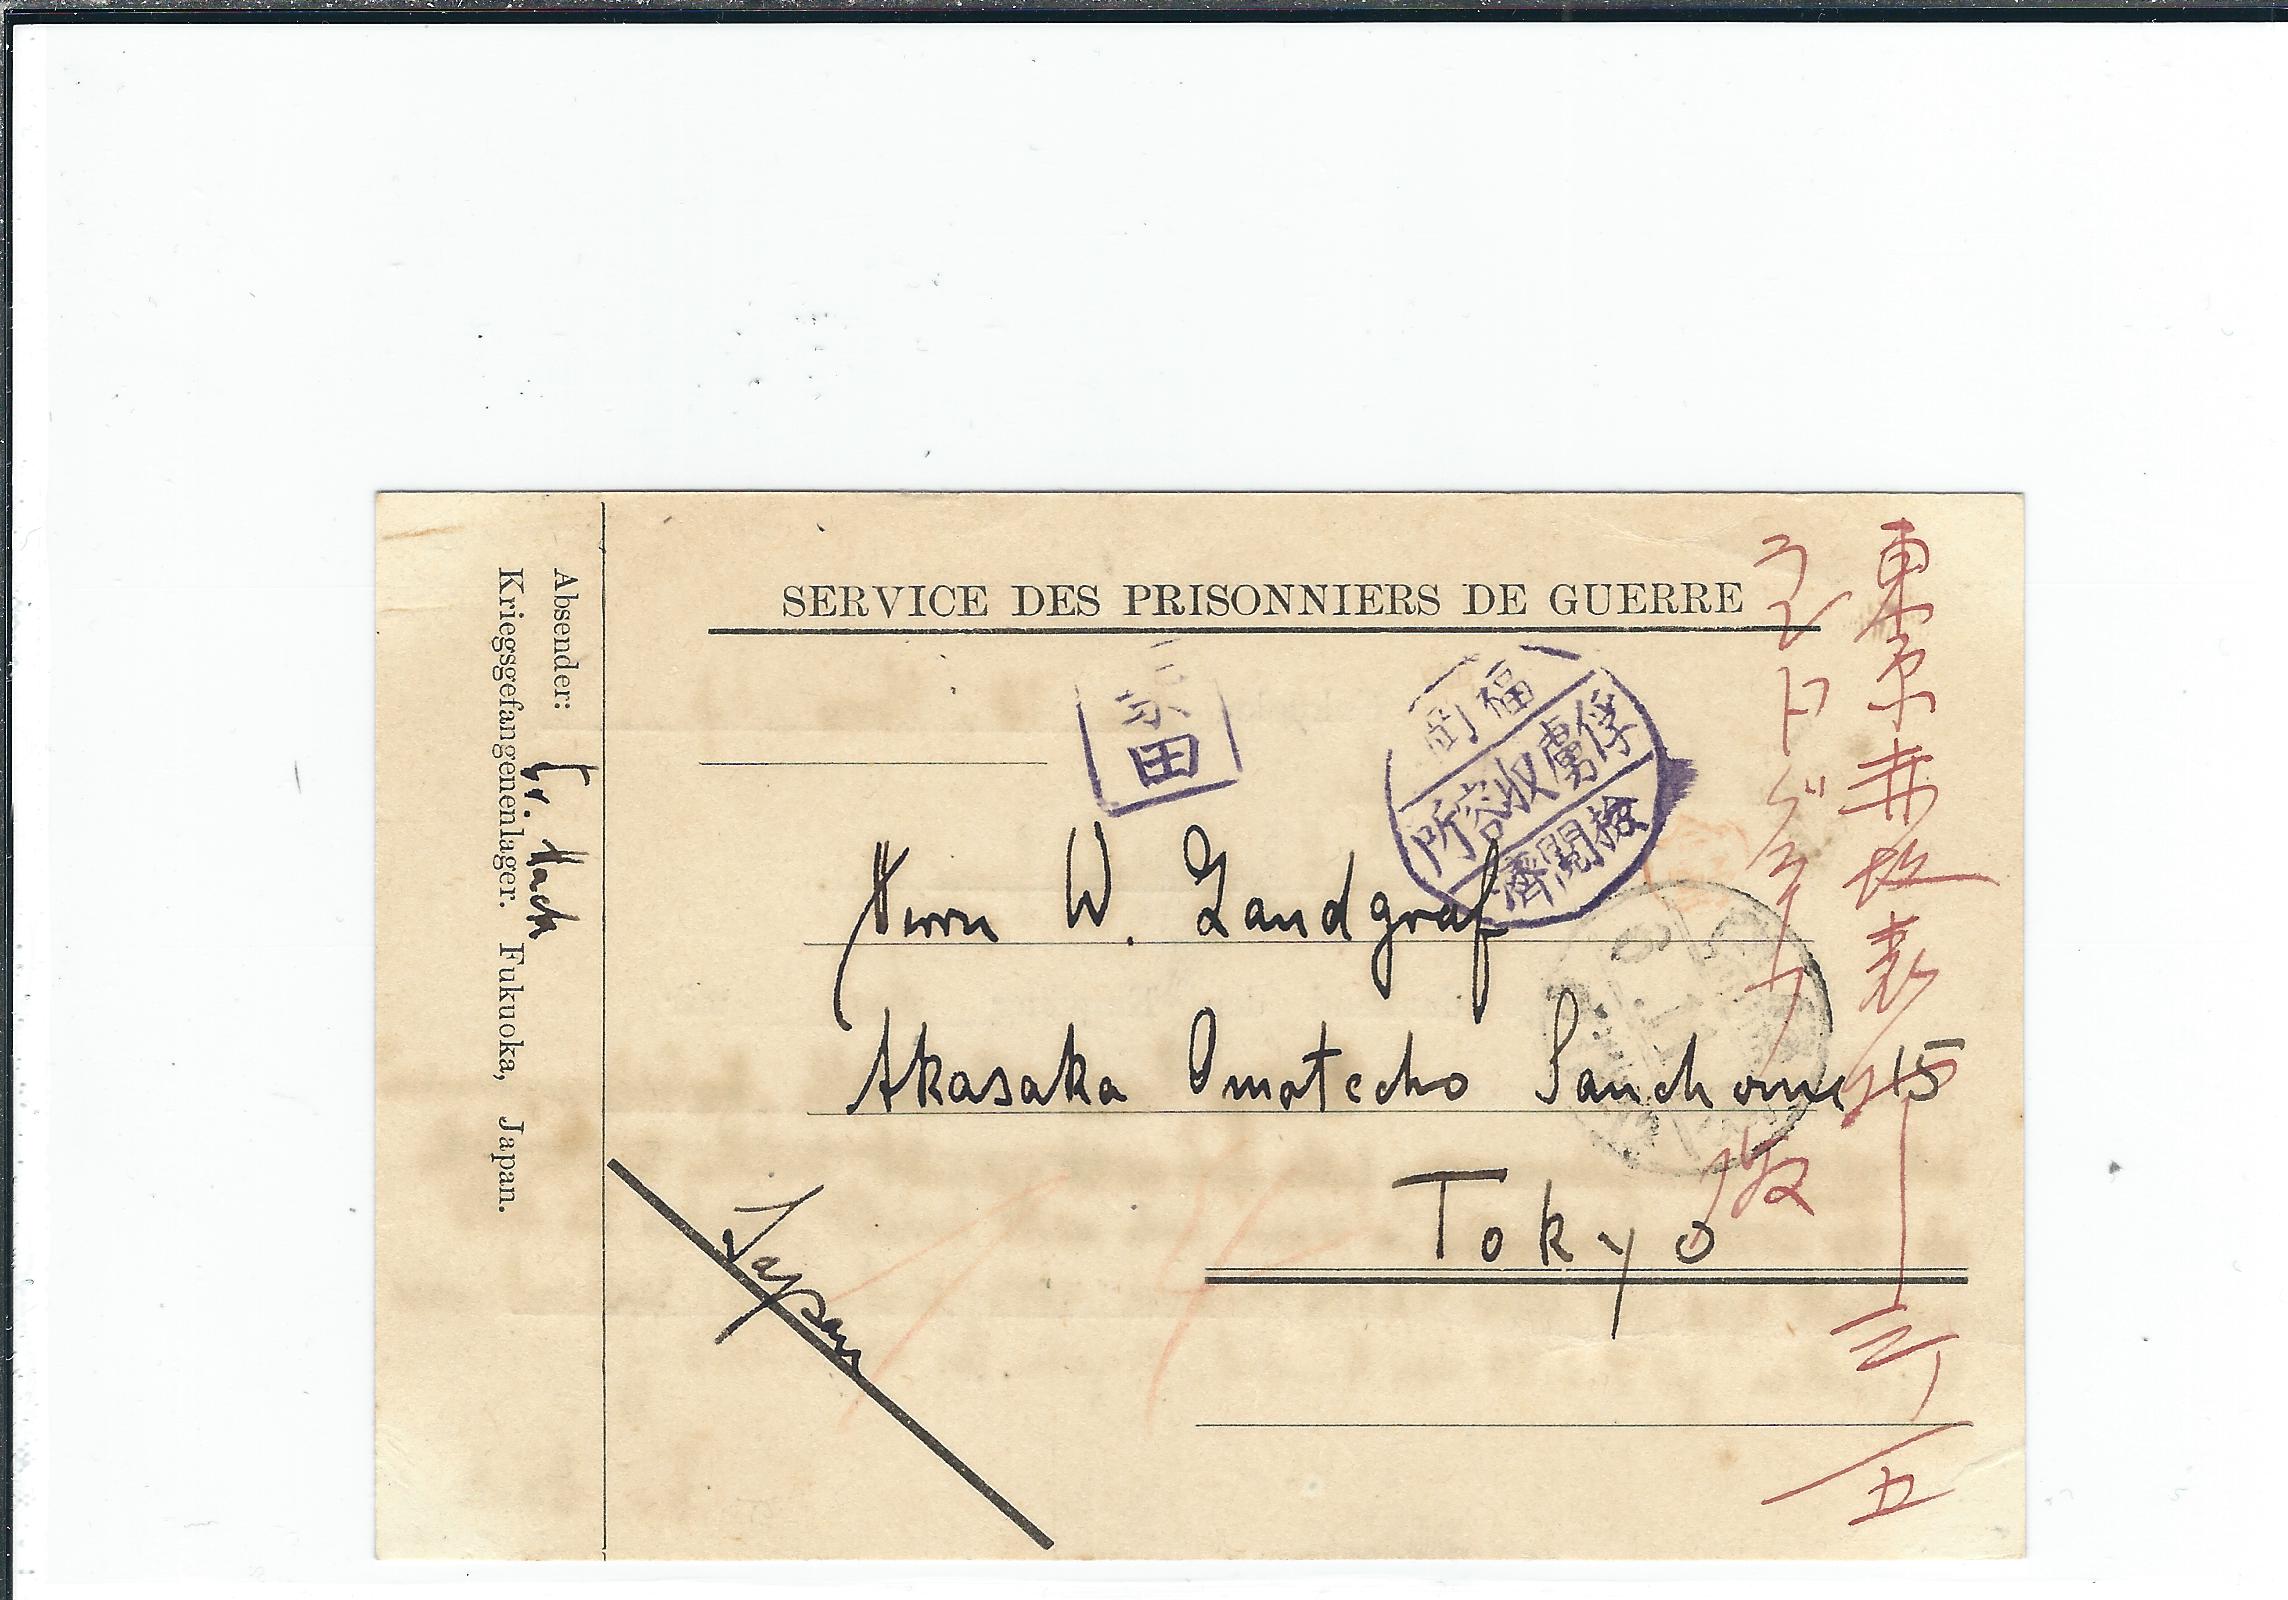 SERVICE DES PRISONNIERS DE GUERRE
Absender: Fr. Hack
Kriegsgefangenenlager. Fukuoka, Japan.
福岡
俘虜収容所
検閲濟
田
Herrn W. Landgraf
Akasaka Omotecho Sanchome 15
Tokyo
Japan
東京赤坂表町
三ノ一五
ランドグラーフ